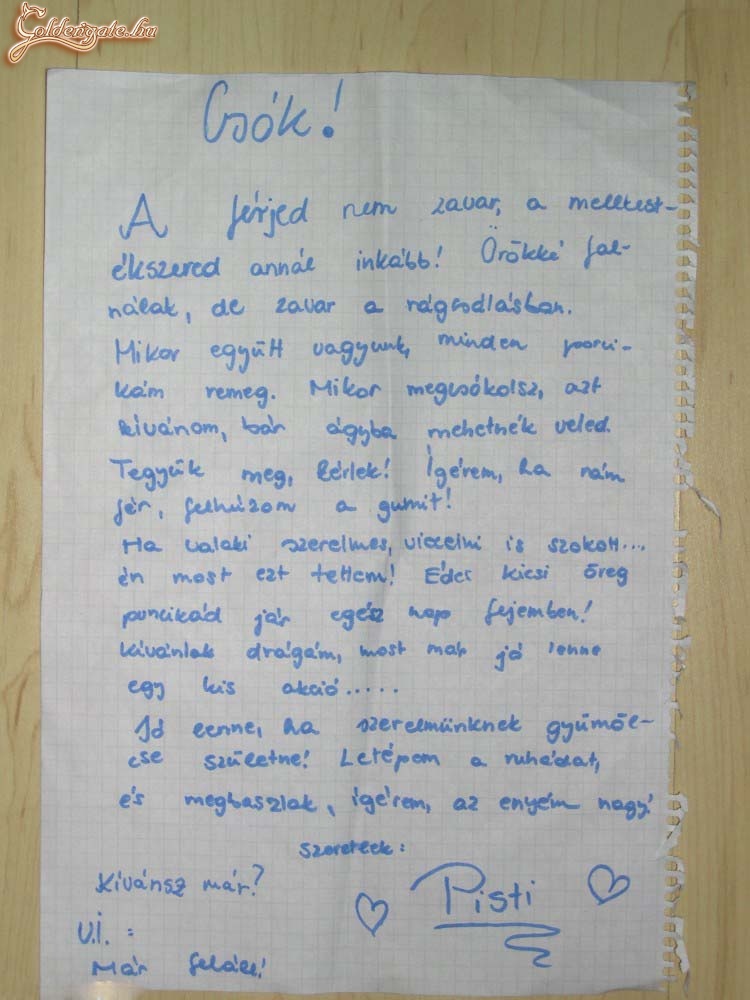 Goldengate.hu
Csók!
A férjed nem zavar, a melltest-
ékszered annál inkább! Örökké fal-
nálak, de zavar a rágcsálásban.
Mikor együtt vagyunk, minden porci-
kám remeg. Mikor megcsókolsz, azt
kívánom, bár ágyba mehetnék veled.
Tegyük meg, kérlek! Ígérem, ha rám
fér, felhúzom a gumit!
Ha valaki szerelmes, viccelni is szokott...
én most ezt tettem! Édes kicsi öreg
puncikád jár egész nap fejemben!
kívánlak drágám, most már jó lenne
egy kis akció.....
Jó lenne, ha szerelmünknek gyümöl-
cse születne! Letépem a ruhádat,
és megbaszlak, ígérem, az enyém nagy!
szeretlek:
Kívánsz már?
Pisti
U.i. :
Már feláll!